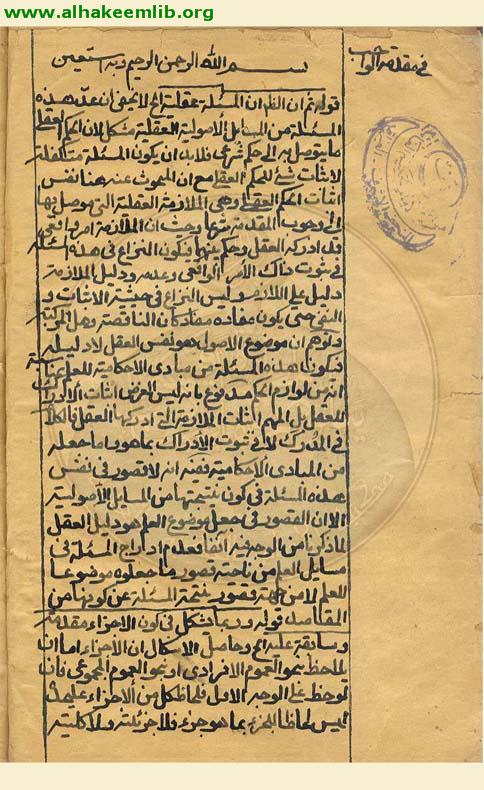 www.alhakeemlib.org
في مقدمة الواجب
بسم الله الرحمن الرحيم وبه نستعين
قوله ثم ان الظ ان المسئلة عقلية اع لا يخفى ان عد هذه
المسئلة من المسائل الأصولية العقلية مشكل لان الحكم العقلي
ما يتوصل به الى حكم شرعي فلا بد ان يكون المسئلة متكفلة
لاثبات شئ للحكم العقلي مع ان المبحوث عنه هنا نفس
اثبات الحكم العقلي وهي الملازمة العقلية التي موصل بها
الى وجوب المقدمة منها وحيث ان الملازمة امر واقعي
قد ادركه العقل وحكم بها فيكون النزاع في هذه المسئلة
في ثبوت ذاك الأمر الواقعي وعدمه ودليل الملازمة
دليل على الملازمة وليس النزاع في حيثية الاثبات و
النفي حتى يكون مفاده مفاد كان الناقصة وهل المركبة
وتوهم ان موضوع الاصول هو نفس العقل لا دليله
فيكون هذه المسئلة من مبادي الاحكامية للعلم
انه من لوازم الحكم مدفوع بانه ليس الغرض اثبات الادراك
للعقل بل المهم اثبات الملازمة التي ادركها العقل فالكلام
في المدرك لا في ثبوت الادراك بما هو واما جعله
من المبادي الاحكامية ففيه انه لا قصور في نفس
هذه المسئلة في كون نتيجتها من المسايل الأصولية
الا ان القصور في جعل موضوع العلم هو دليل العقل
لما ذكرنا من الوجه فيه آنفا فعدم ادراج المسئلة في
مسايل العلم من ناحية قصور ما جعلوه موضوعا
للعلم لا من جهة قصور نتيجة المسئلة عن كونها من
المقاصد قوله وربما يشكل في كون الاجزاء مقدمة
وسابقة عليه اع وحاصل الاشكال ان الاجزاء اما ان
يلاحظ بنحو العموم الافرادي او نحو العموم المجموعي فان
لوحظ على الوجه الاول فلحاظ كل من الاجزاء عليحدة
ليس لحاظا للجزء بما هو جزء فلا جزئية ولا كلية